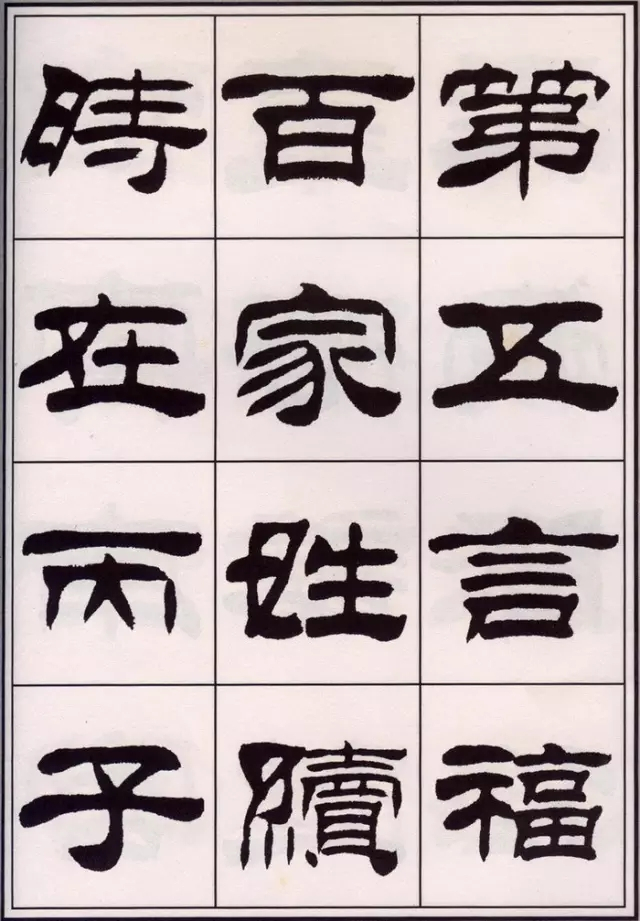 第五言福
百家姓續
時在丙子